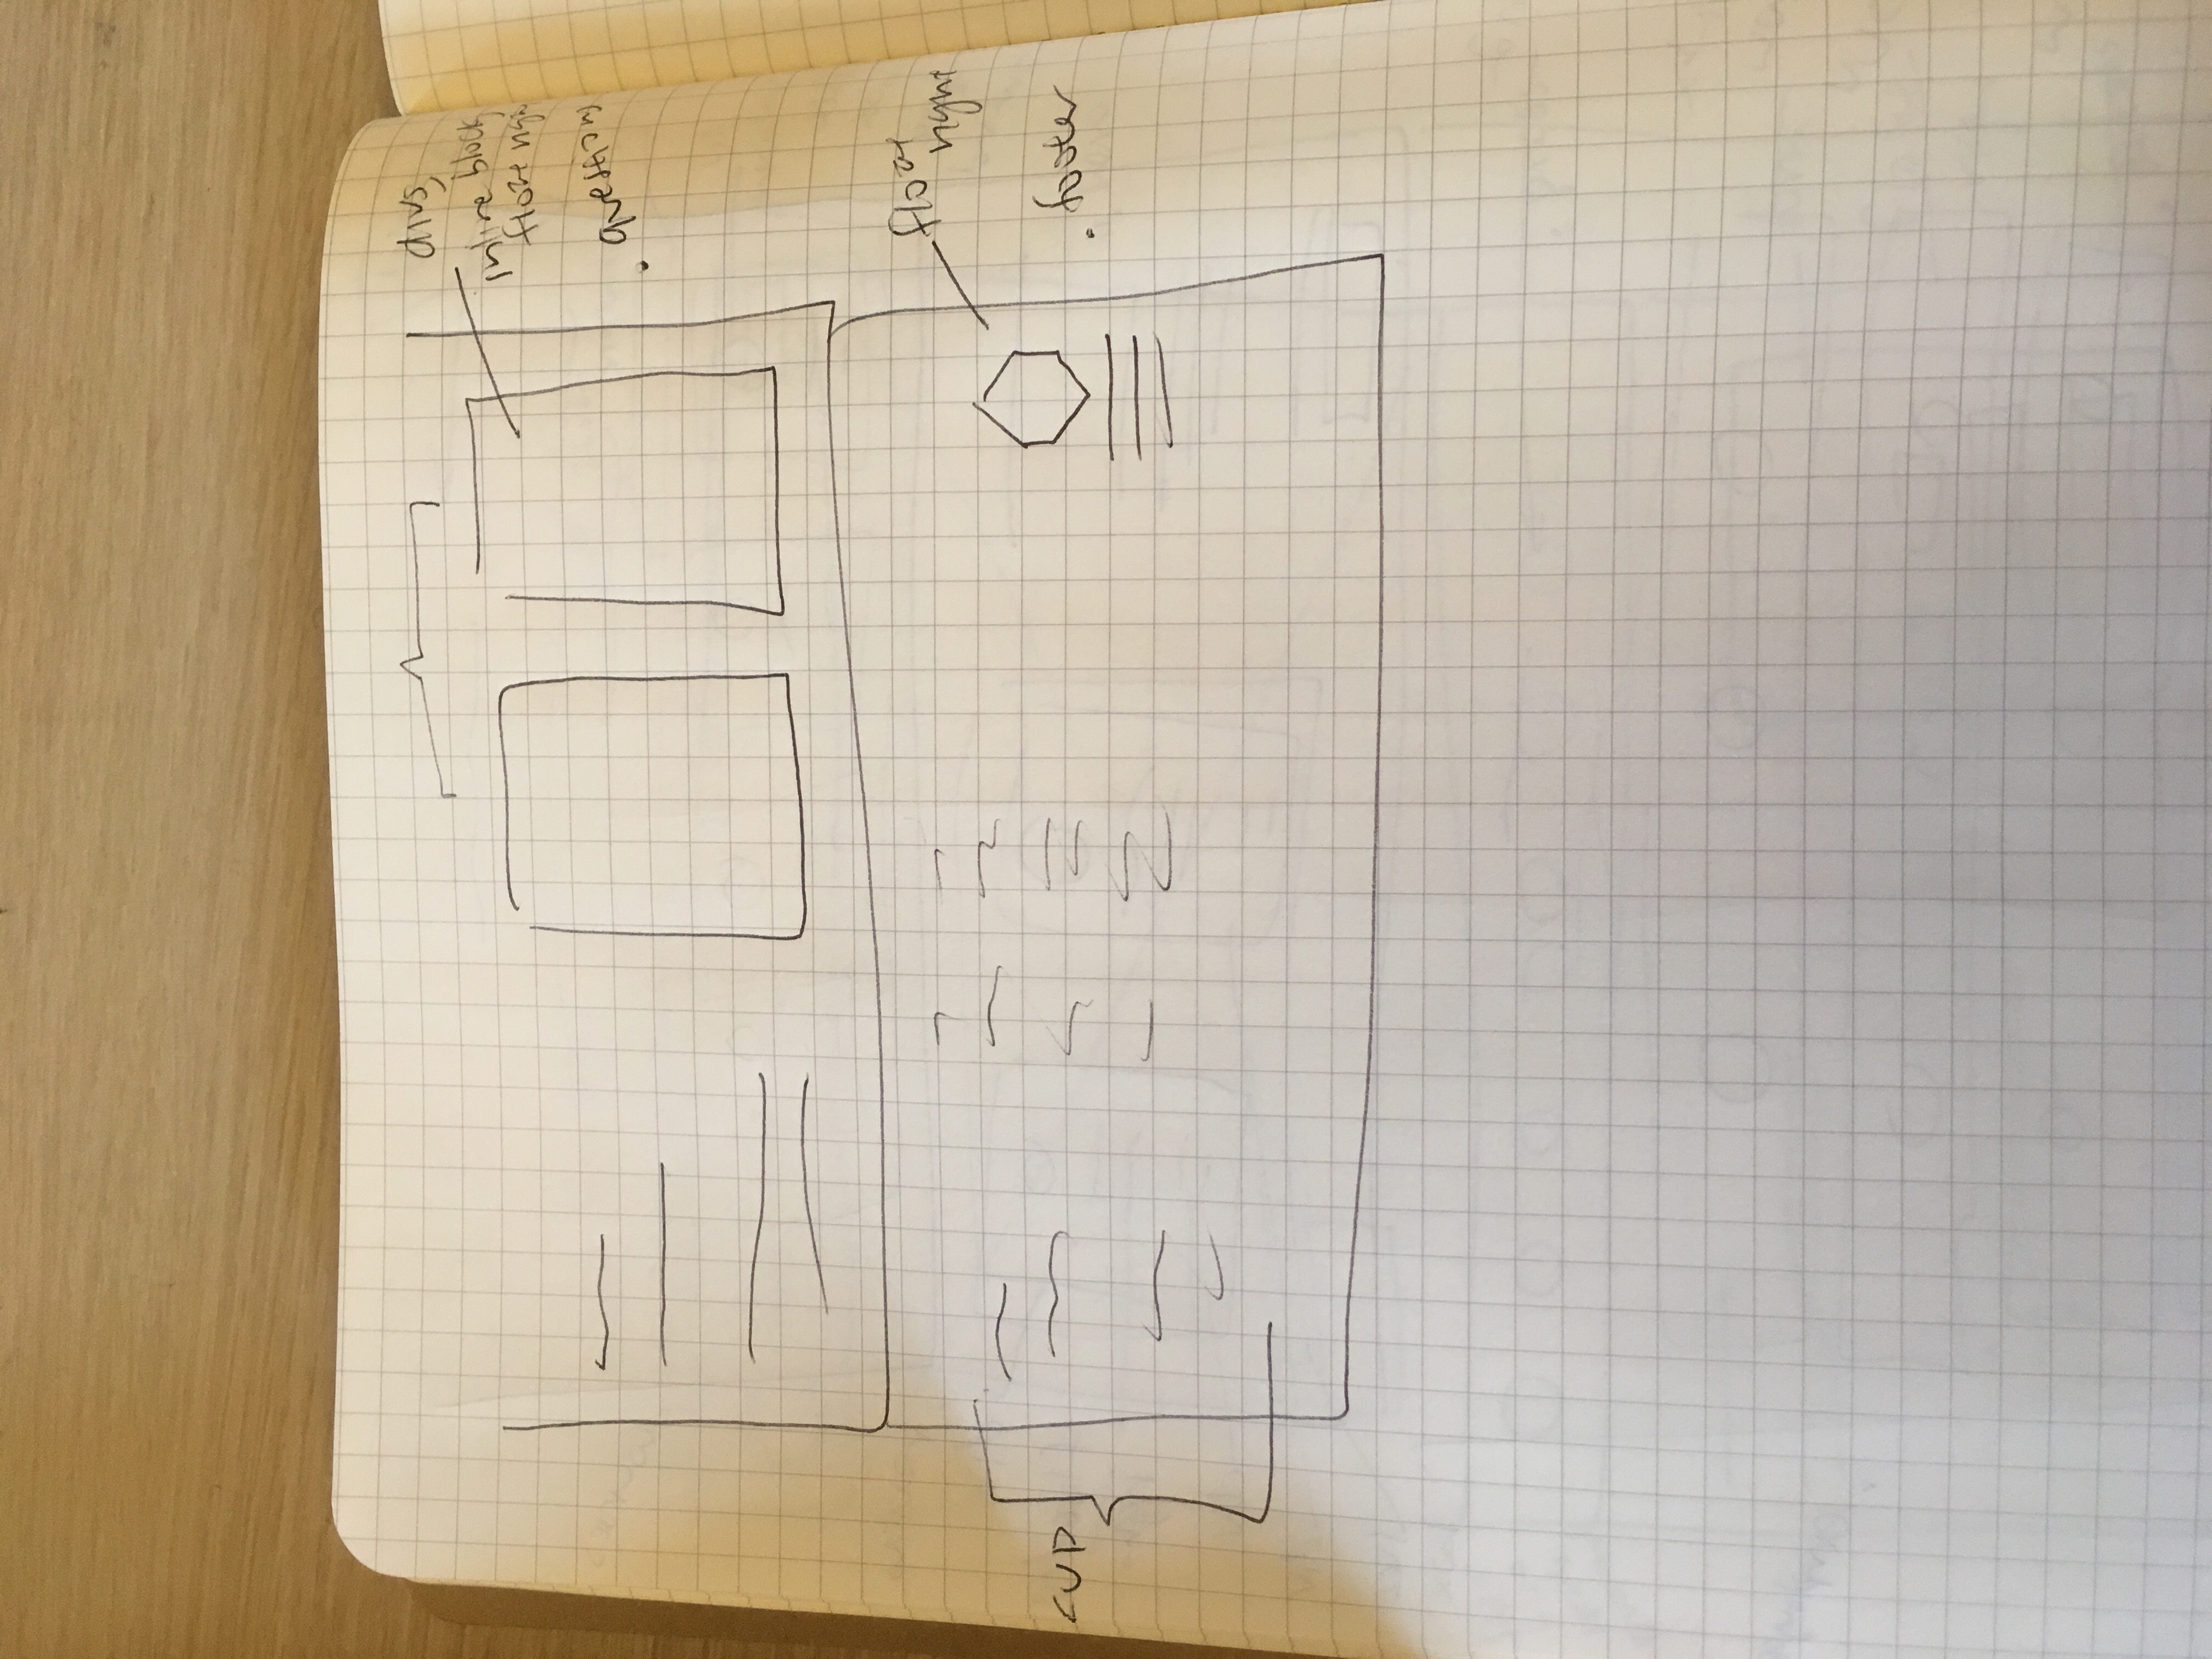 divs,
inline block,
float righ
. questions
float
right
. footer